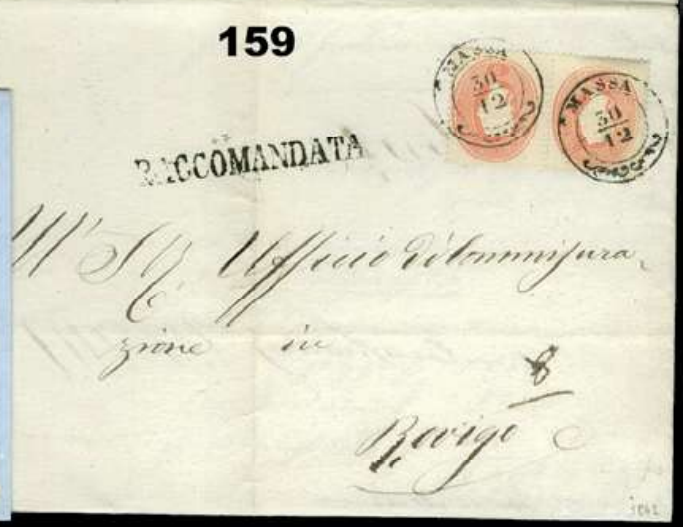 159
MASSA
30
12
MASSA
30
12
RACCOMANDATA
Ufficio di Commisura
zione in
8
Rovigo
1862